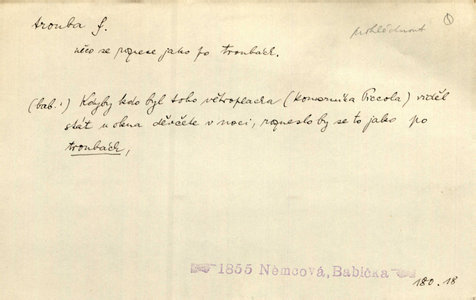 trouba f.
prohlédnout
①
něco se roznese jako po troubách.
(bab.) Kdyby kdo byl toho větroplacha (komorníka Piccola) viděl
stát u okna děvčete v noci, rozneslo by se to jako po
troubách,
1855 Němcová, Babička
180.18